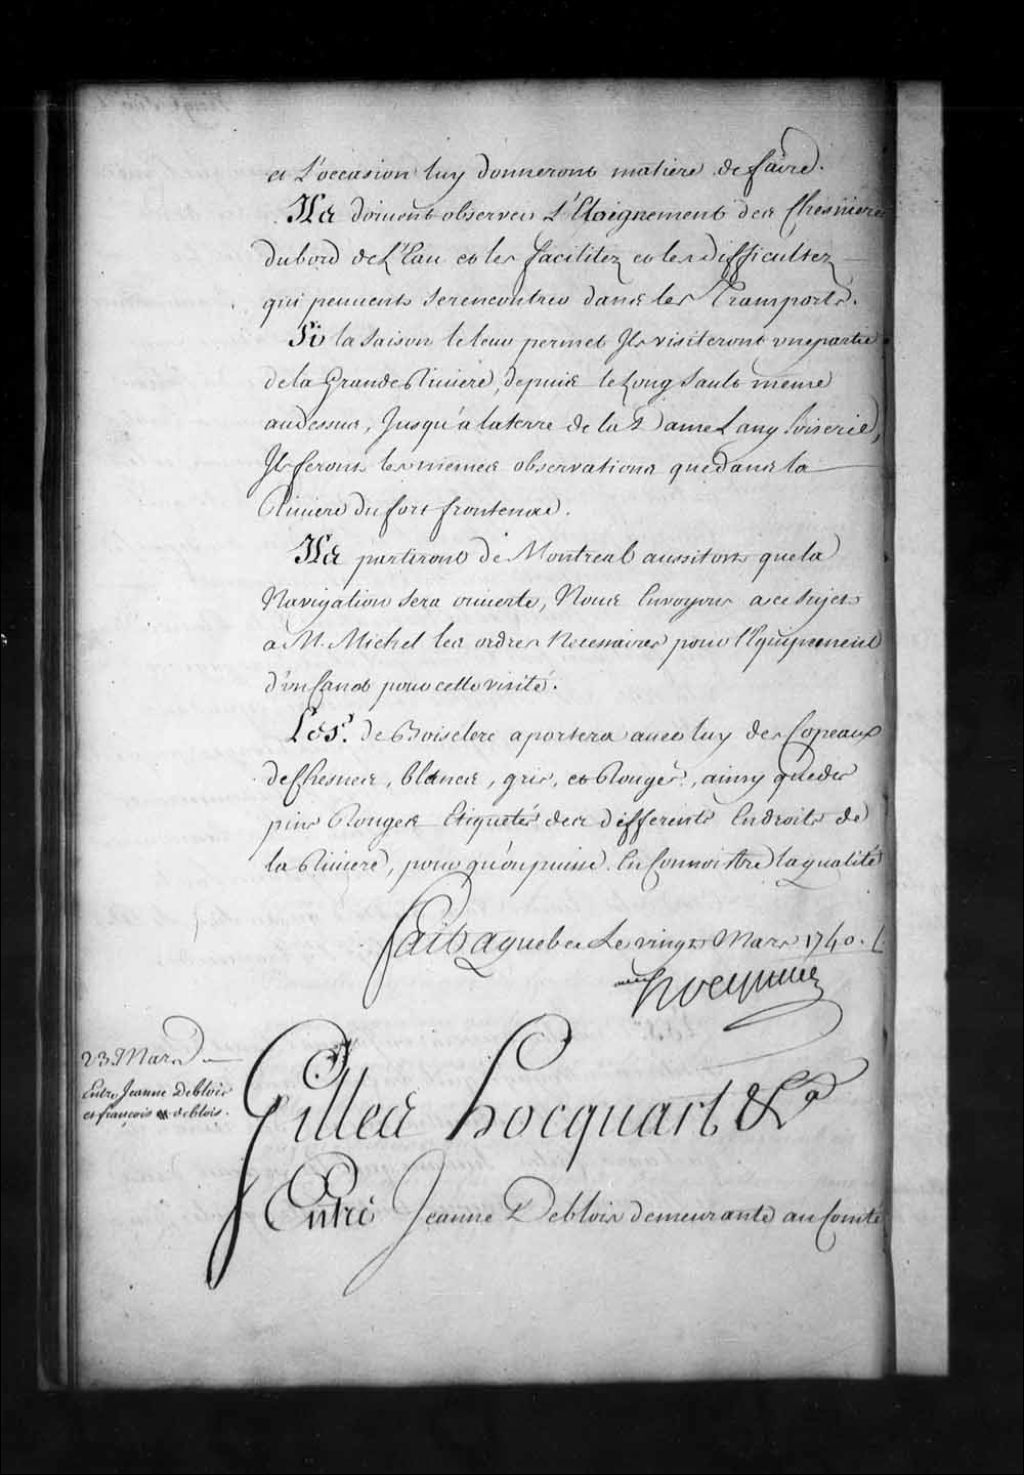 et l'occasion luy donneront matiere de faire.
Ils doivent observer l'Eloignement des Chesnieres
du bord de l'Eau et les facilitez et les difficultez
qui peuvent se rencontrer dans les Transports.
Si la Saison le leur permet Ils visiteront une partie
de la Grande Riviere, depuis le Long Sault meme
au dessus, Jusqu'a la terre de la Dame Langloiserie,
Ils feront les memes observations que dans la
Riviere du fort frontenac.
Ils partiront de Montreal aussitost que la
Navigation sera ouverte, Nous Envoyons a ce sujet
a M. Michel les ordres Necessaires pour l'Equipement
d'un Canot pour cette visite.
Le Sr. de Boisclere aportera avec luy des Copeaux
de Chesnes, blancs, gris, et Rouges, ainsy que des
pins Rouges Etiquetés des differents Endroits de
la Riviere, pour qu'on puisse En Connoistre la qualité
Fait a quebec Le vingt Mars 1740.
hocquart
23. Mars
Entre Jeanne Deblois
et françois deblois.
Gilles hocquart &ca
Entre Jeanne Deblois demeurante au Comté